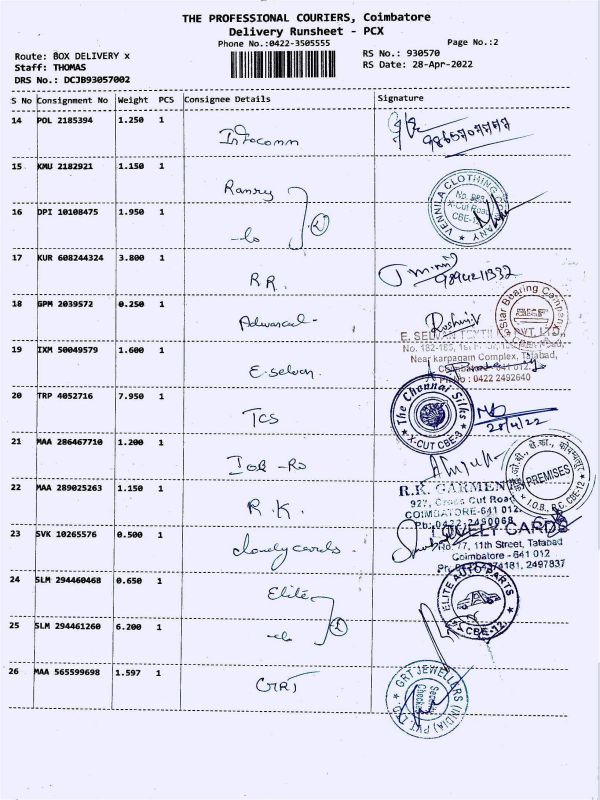 THE PROFESSIONAL COURIERS, Coimbatore
Delivery Runsheet - PCX
Phone No.:0422-3505555
Page No.:2
Route: BOX DELIVERY x
RS No.: 930570
Staff: THOMAS
RS Date: 28-Apr-2022
DRS No.: DCJB93057002
S No Consignment No Weight PCS Consignee Details Signature
14 POL 2185394 1.250 1
Infocomm
15 KMU 2182921 1.150 1
VENNILA CLOTHING COMPANY
No. 983
X-Cut Road
CBE-12
16 DPI 10108475 1.950 1
17 KUR 608244324 3.800 1
R R.
18 GPM 2039572 0.250 1
Star Bearing Company
E. SELVAN TEXTILE PVT. LTD.,
Near karpagam Complex, Tatabad,
Coimbatore - 641 012.
Ph No : 0422 2492640
19 IXM 50049579 1.600 1
E. Selvan.
20 TRP 4052716 7.950 1
TCS
The Chennai Silks
X-CUT CBE-3
28/4/22
21 MAA 286467710 1.200 1
IOB - RS
PREMISES
I.O.B., R.C. CBE-12
22 MAA 289025263 1.150 1
R. K.
R.K. GARMENT
927, Cross Cut Road
COIMBATORE-641 012
Ph: 0422-2490068
23 SVK 10265576 0.500 1
Lovely cards.
LOVELY CARDS
77, 11th Street, Tatabad
Coimbatore - 641 012
2374181, 2497837
24 SLM 294460468 0.650 1
Elite
ELITE AUTO PARTS
CBE-12.
25 SLM 294461260 6.200 1
26 MAA 565599698 1.597 1
GRT
GRT JEWELLERS (INDIA) PVT. LTD.
Security
Checked